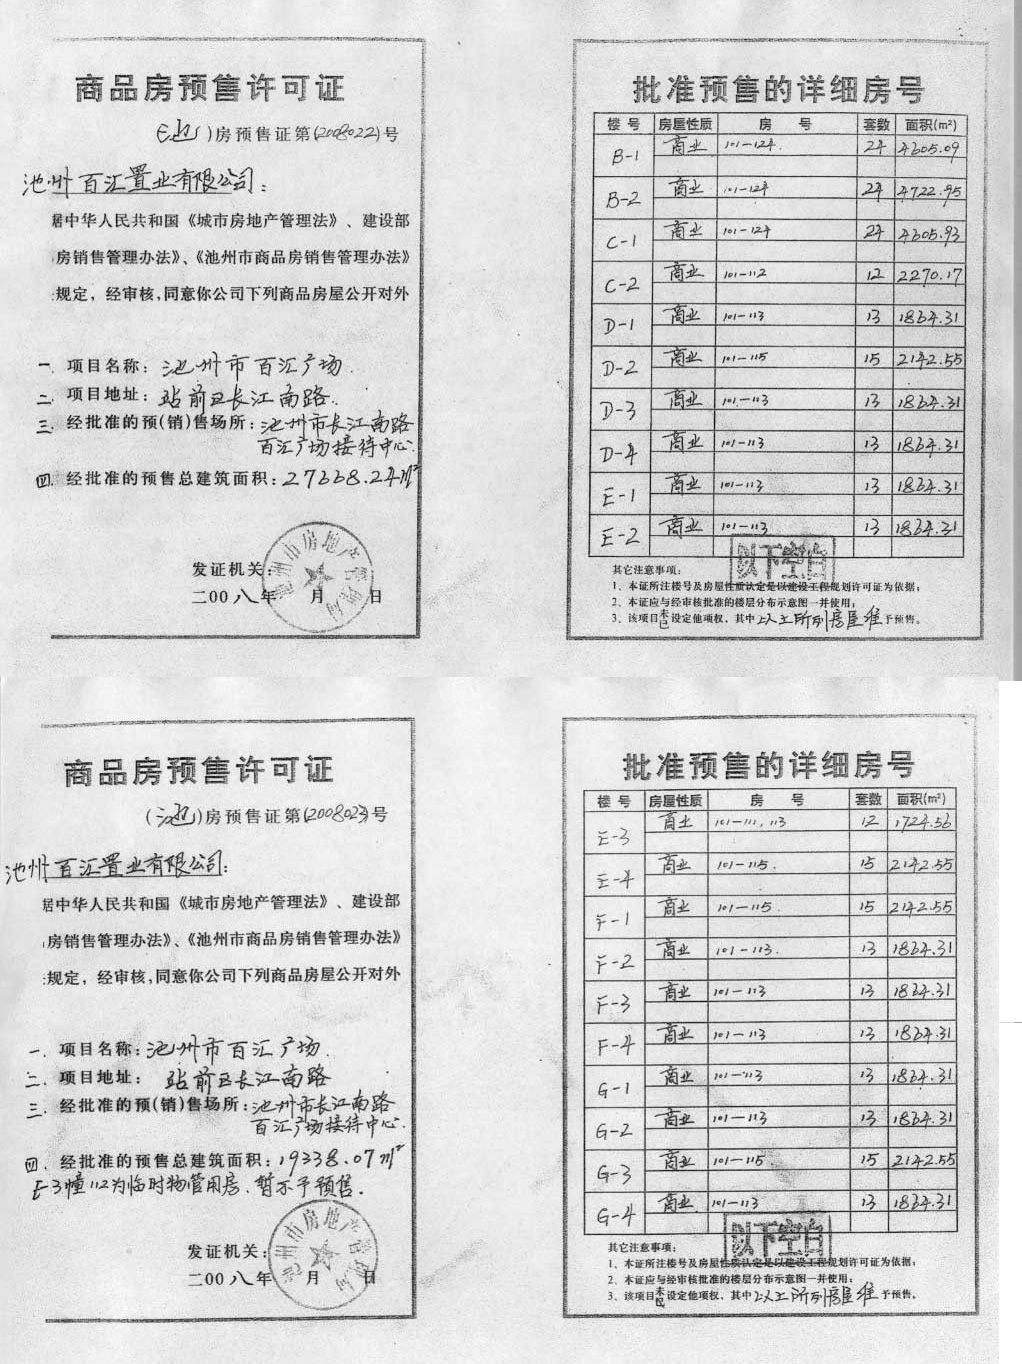 商品房预售许可证
(池)房预售证第(2008022)号
池州百汇置业有限公司:
据中华人民共和国《城市房地产管理法》、建设部
房销售管理办法》、《池州市商品房销售管理办法》
规定，经审核,同意你公司下列商品房屋公开对外
一、项目名称:池州市百汇广场.
二、项目地址:站前区长江南路.
三、经批准的预(销)售场所:池州市长江南路
百汇广场接待中心.
四、经批准的预售总建筑面积:27668.24㎡
池州市房地产管理局
发证机关:
二00八年 月 日
批准预售的详细房号
楼 号 房屋性质 房 号 套数 面积(m²)
B-1 商业 101-124. 24 4605.09
B-2 商业 101-124 24 4722.95
C-1 商业 101-124 24 4605.93
C-2 商业 101-112 12 2270.17
D-1 商业 101-113 13 1864.31
D-2 商业 101-115 15 2142.55
D-3 商业 101-113 13 1864.31
D-4 商业 101-113 13 1864.31
E-1 商业 101-113 13 1864.31
E-2 商业 101-113 13 1864.31
以下空白
其它注意事项:
1、本证所注楼号及房屋性质认定是以建设工程规划许可证为依据;
2、本证应与经审核批准的楼层分布示意图一并使用;
3、该项目未已设定他项权，其中以上所列房屋准予预售。
商品房预售许可证
(池)房预售证第(2008023)号
池州百汇置业有限公司:
据中华人民共和国《城市房地产管理法》、建设部
房销售管理办法》、《池州市商品房销售管理办法》
规定，经审核,同意你公司下列商品房屋公开对外
一、项目名称:池州市百汇广场.
二、项目地址: 站前区长江南路
三、经批准的预(销)售场所:池州市长江南路
百汇广场接待中心.
四、经批准的预售总建筑面积:19338.07㎡
E-3幢112为临时物管用房、暂不予预售.
池州市房地产管理局
发证机关:
二00八年 月 日
批准预售的详细房号
楼 号 房屋性质 房 号 套数 面积(m²)
E-3 商业 101-111, 113 12 1724.56
E-4 商业 101-115. 15 2142.55
F-1 商业 101-115. 15 2142.55
F-2 商业 101-113. 13 1864.31
F-3 商业 101-113 13 1864.31
F-4 商业 101-113 13 1864.31
G-1 商业 101-113 13 1864.31
G-2 商业 101-113 13 1864.31
G-3 商业 101-115. 15 2142.55
G-4 商业 101-113 13 1864.31
以下空白
其它注意事项:
1、本证所注楼号及房屋性质认定是以建设工程规划许可证为依据;
2、本证应与经审核批准的楼层分布示意图一并使用;
3、该项目未已设定他项权，其中以上所列房屋准予预售。